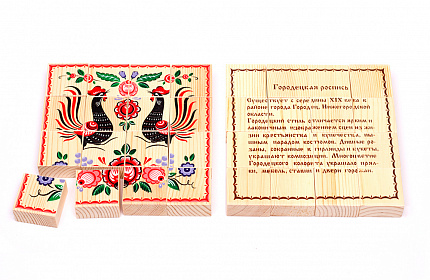 Городецкая роспись
Существует с середины XIX века в
районе города Городец, Нижегородской
области.
Городецкий стиль отличается ярким и
лаконичным изображением сцен из жиз-
ни крестьянства и купечества,
ным парадом костюмов. Дивные ро-
заны, собранные в гирлянды и букеты,
украшают композиции. Многоцветие
Городецкого колорита украшало прял-
ки, мебель, ставни и двери горожан.